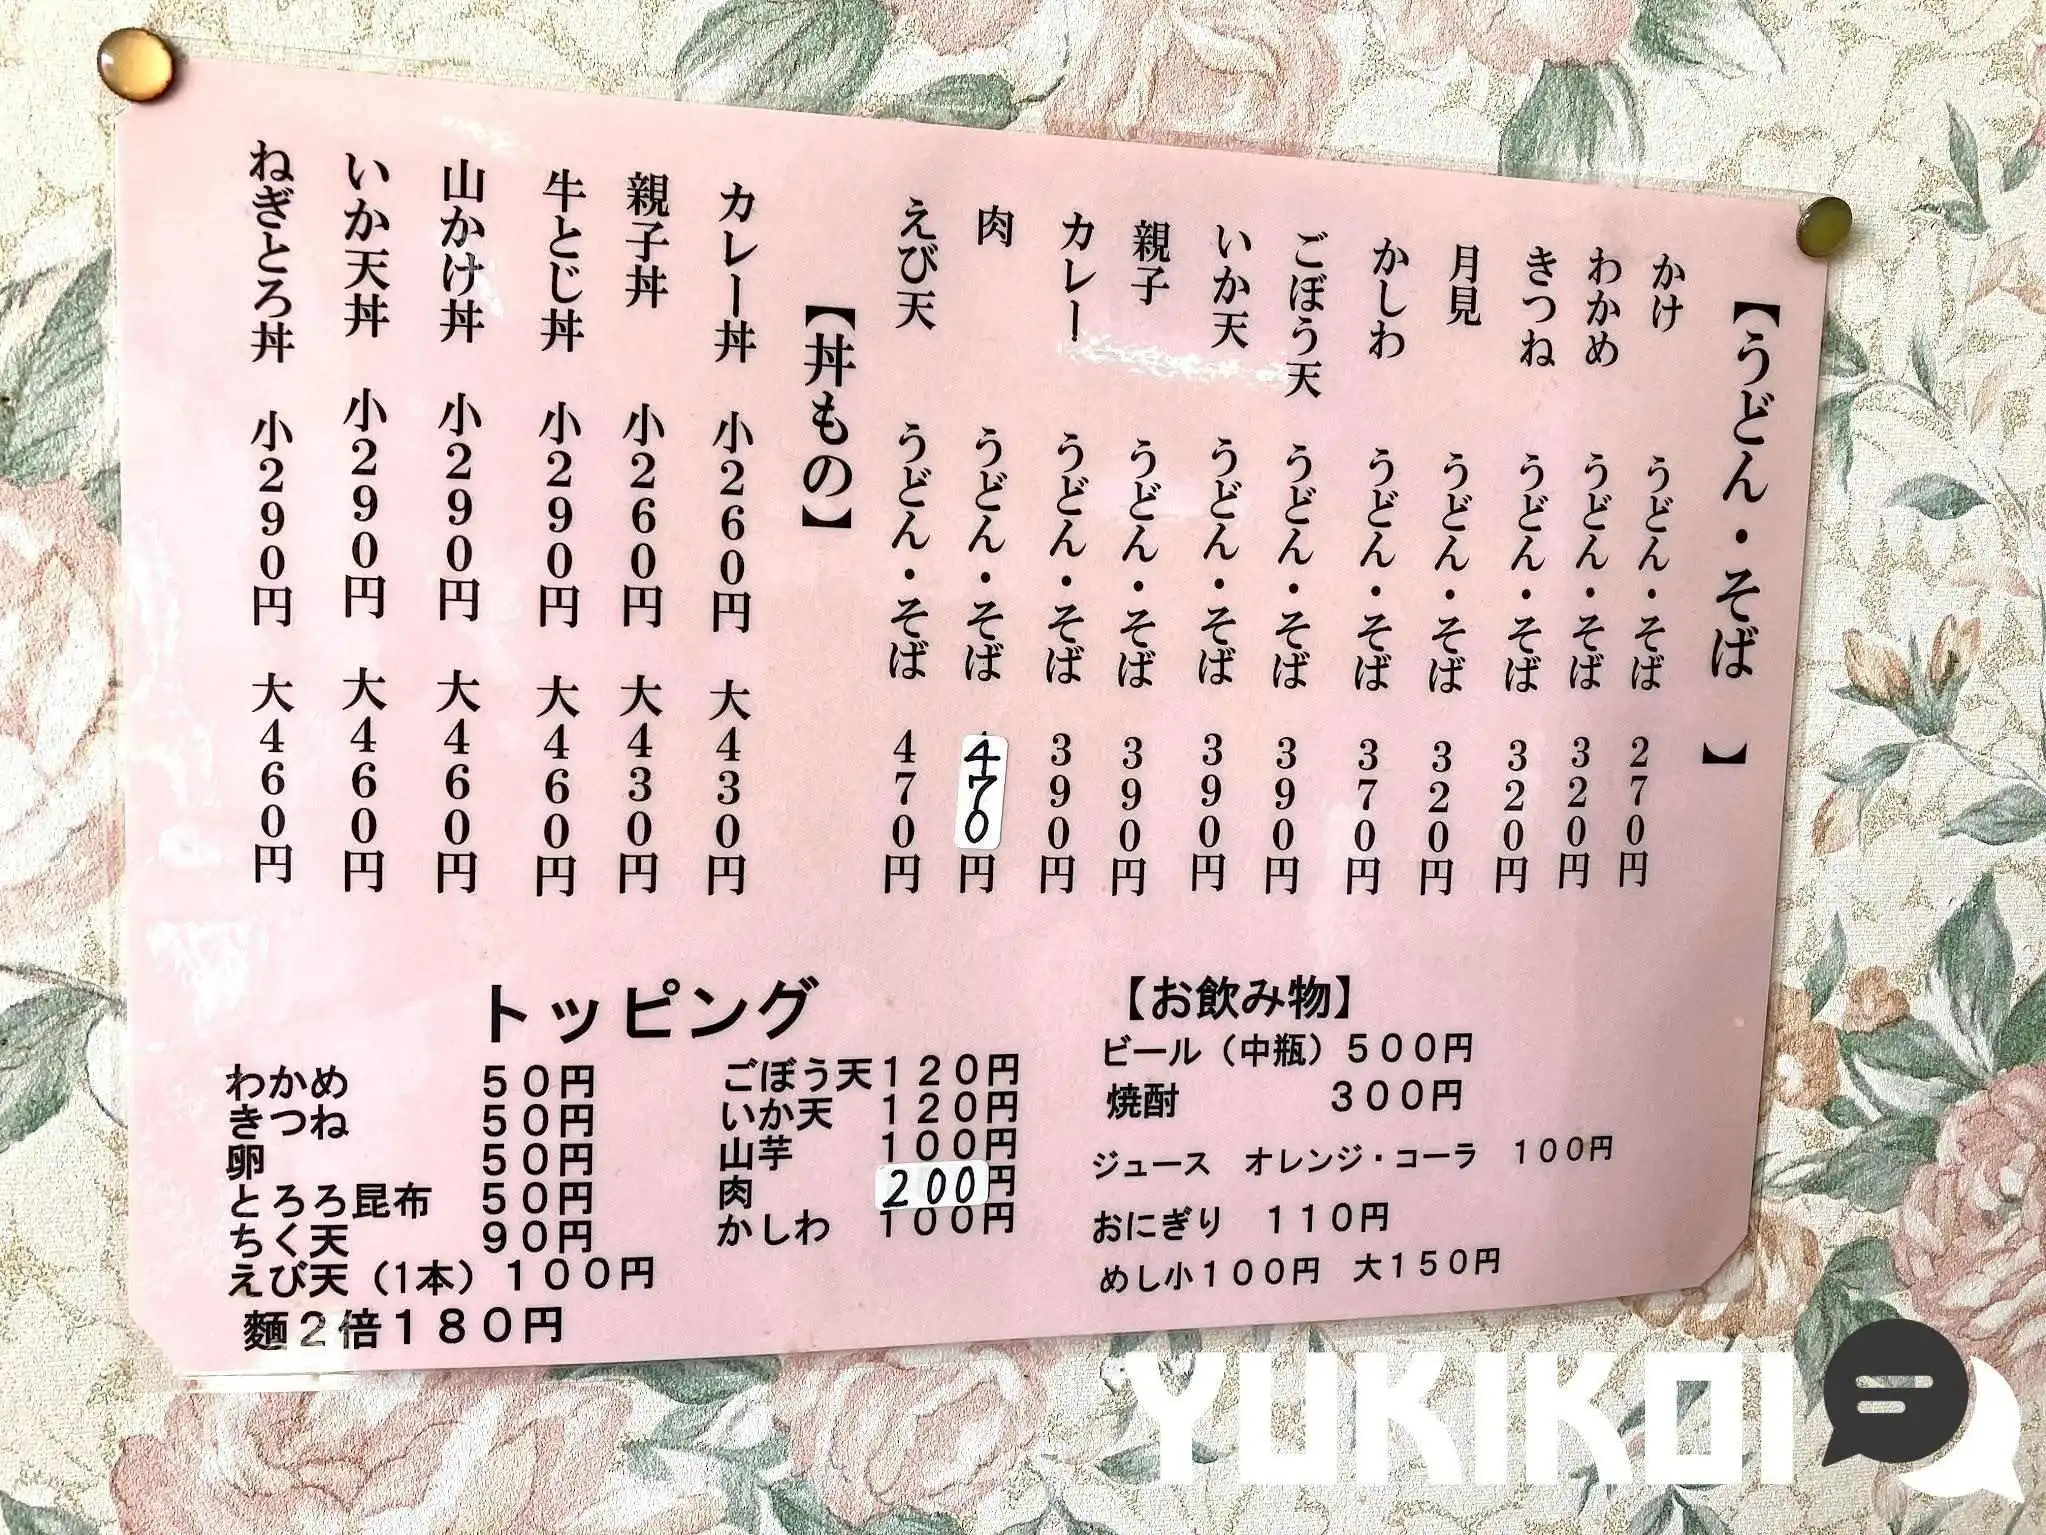 【うどん・そば】
かけ うどん・そば 270円
わかめ うどん・そば 320円
きつね うどん・そば 320円
月見 うどん・そば 320円
かしわ うどん・そば 370円
ごぼう天 うどん・そば 390円
いか天 うどん・そば 390円
親子 うどん・そば 390円
カレー うどん・そば 390円
肉 うどん・そば 470円
えび天 うどん・そば 470円
【丼もの】
カレー丼 小260円 大430円
親子丼 小260円 大430円
牛とじ丼 小290円 大460円
山かけ丼 小290円 大460円
いか天丼 小290円 大460円
ねぎとろ丼 小290円 大460円
トッピング
わかめ 50円
きつね 50円
卵 50円
とろろ昆布 50円
ちく天 90円
えび天(1本)100円
麵2倍180円
ごぼう天120円
いか天 120円
山芋 100円
肉 200円
かしわ 100円
【お飲み物】
ビール(中瓶)500円
焼酎 300円
ジュース オレンジ・コーラ 100円
おにぎり 110円
めし小100円 大150円
YUKIKOI